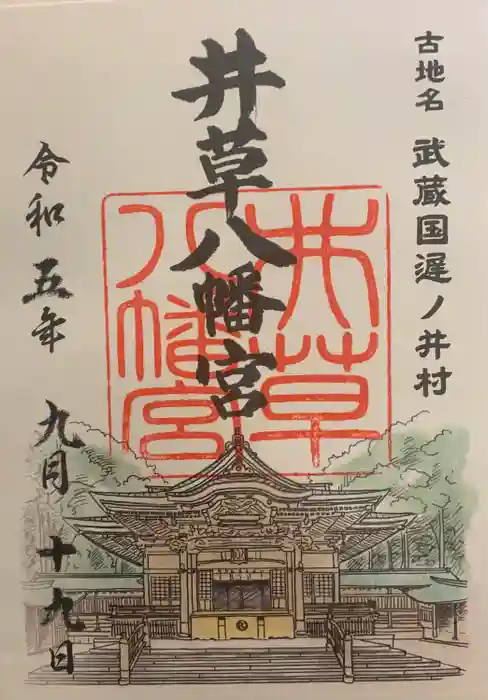 古地名 武蔵国遅ノ井村
井草八幡宮
井草
八幡
宮
令和五年九月十九日